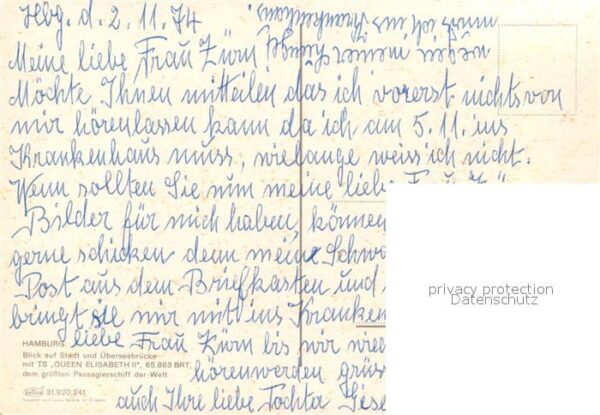 Hbg. d. 2. 11. 74
Meine liebe Frau Zürn
Möchte Ihnen mitteilen das ich vorerst nichts von
mir hörenlassen kann da ich am 5.11. ins
Krankenhaus muss, wielange weiss ich nicht.
Wenn sollten Sie nun meine liebe Frau Zü
Bilder für mich haben, können
gerne schicken denn meine Schwa
Post aus dem Briefkasten und
bringt sie mir mit ins Kranken
liebe Frau Zürn bis wir wie
hörenwerden grüs
auch Ihre liebe Tochter Gise
wegen meiner
muss ich ins Krankenhaus
privacy protection
Datenschutz
HAMBURG
Blick auf Stadt und Überseebrücke
mit TS „QUEEN ELISABETH II", 65.863 BRT,
dem größten Passagierschiff der Welt
31.920.241